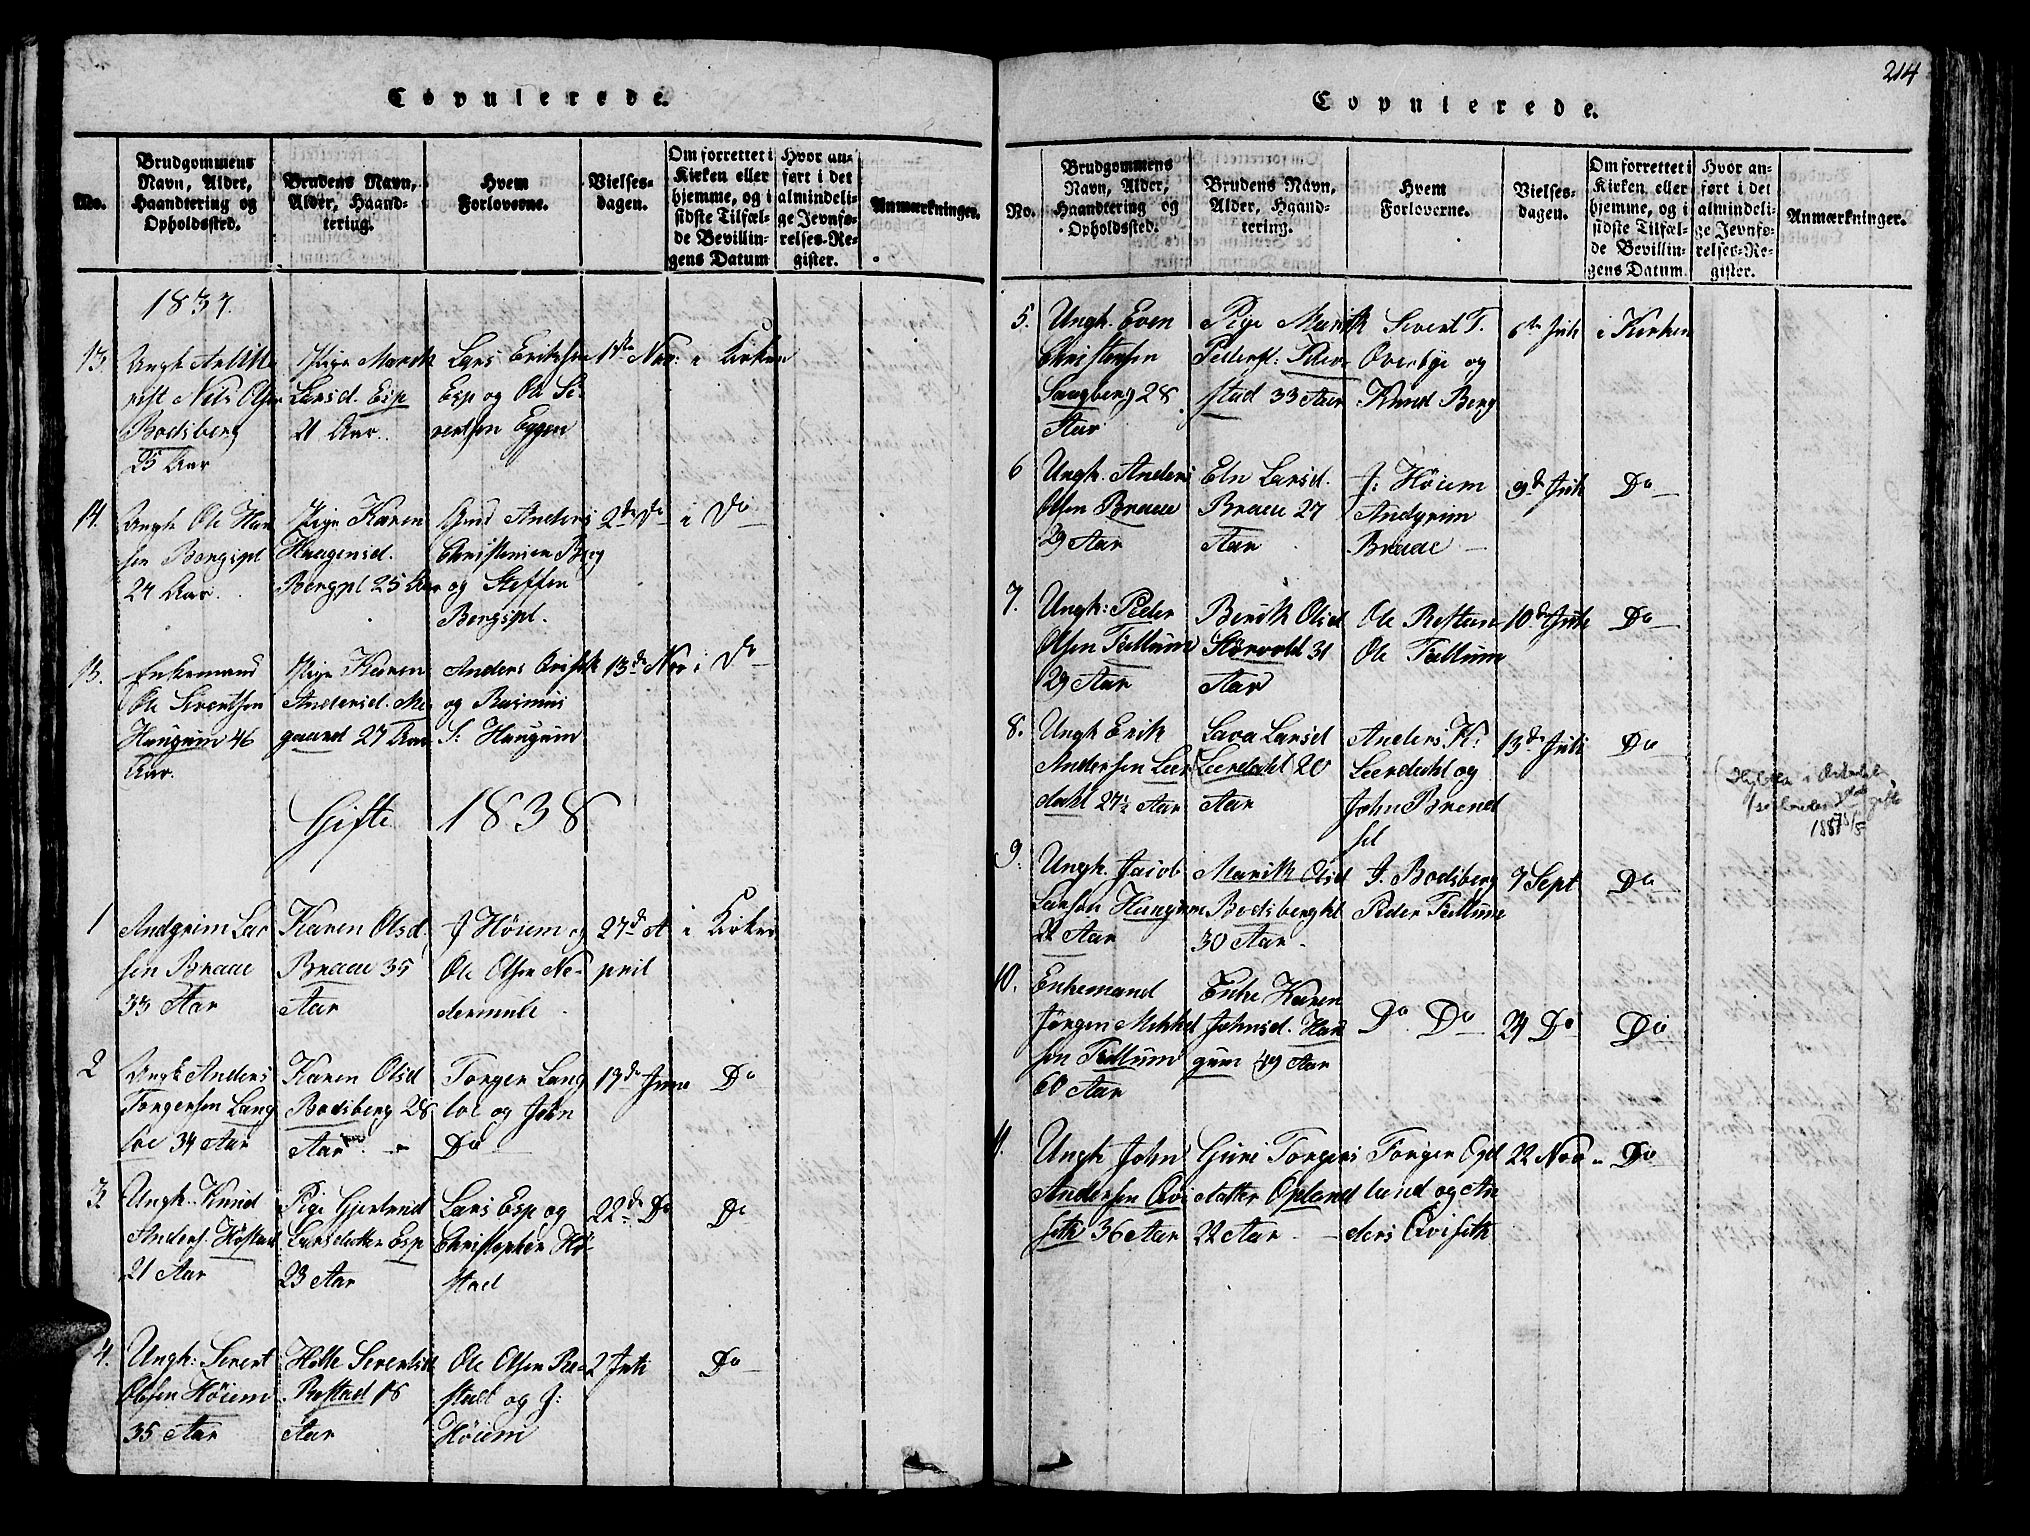 Copulerede.
No.
Brudgommens
Navn, Alder,
Haandtering og
Opholdssted.
Brudens Navn,
Alder, Haand-
tering.
Hvem
Forloverne.
Vielses-
dagen.
Om forrettet i
Kirken eller
hjemme, og i
sidste Tilfæl-
de Bevillin-
gens Datum
Hvor an-
ført i det
almindeli-
ge Jevnfø-
relses-Re-
gister.
Anmærkninger.
1837.
13.
Ungk Artille
rist Nels Olsen
Bodsberg
25 Aar
Pige Marek
Larsd. Esp
21 Aar.
Lars Erichsen
Esp og Ole Si-
vertsen Eggen
1ste Nov:
i Kirken
14.
Ungk Ole Han
sen Bergspl
24 Aar.
Pige Karen
Haagensd.
Bergspl 25 Aar
Anders
Christensen Berg
og Steffen
Bergspl.
2de Do
i Do
15.
Enkemand
Ole Sivertsen
Haugum 46
Aar.
Pige Karen
Andersd. Me-
gaard 27 Aar
Anders Qviseth
og Rasmus
S: Haugum
13de Nov
i Do
Gifte 1838
1
Andgrim Lar
sen Braae
33 Aar
Karen Olsd.
Braae 35
Aar
J Höiem og
Ole Olsen Ne-
dermule
27de A
pril
i Kirken
2
Ungk Anders
Torgersen Lang
loe 34 Aar
Karen Olsd
Bodsberg 28
Aar
Torger Lang
loe og John
Do
19de Juni
Do
3
Ungk. Knud
Anders. Höstad
21 Aar
Pige Gjertrud
Larsdatter Esp
23 Aar
Lars Esp og
Christopher Hö-
stad
22de Do
Do
4.
Ungk: Sivert
Olsen Höiem
35 Aar
Sivertsd
Restad 18
Aar
Ole Olsen Re-
stad og J:
Höiem
2 Juli
Do
214
Copulerede.
No.
Brudgommens
Navn, Alder,
Haandtering og
Opholdssted.
Brudens Navn,
Alder, Haand-
tering.
Hvem
Forloverne.
Vielses-
dagen.
Om forrettet i
Kirken eller
hjemme, og i
sidste Tilfæl-
de Bevillin-
gens Datum.
Hvor an-
ført i det
almindeli-
ge Jevnfø-
relses-Re-
gister.
Anmærkninger.
5.
Ungk. Even
Christensen
Saugberg 28
Aar
Pige Marith
Pedersd:
stad 33 Aar
Sivert T.
Overbye og
Knud Berg
6te Juli
i Kirken
6
Ungk. Anders
Olsen Braae
29 Aar
Eln Larsd.
Braae 27
Aar
J: Höiem
Andgrim
Braae
9de Juli
Do
7.
Ungk: Peder
Olsen Tullum
29 Aar
Berith Olsd
Störvold 31
Aar
Ole
Ole Tullum
10de Juli
Do
8.
Ungk Erik
Andersen Leer
dahl 27½ Aar
Lava Larsd
Leerdahl 20
Aar
Anders K:
Leerdahl og
John Brend
sel
13de Juli
Do
9.
Ungk. Jacob
Larsen Haugum
22 Aar
Marith Olsd
Bodsberghl
30 Aar
J. Bodsberg
Peder Tullum
7 Sept
Do
10.
Enkemand
Jörgen Mikkel
sen Tullum
60 Aar
Enke Karen
Johnsd. Hau
gum 49 Aar
Do Do
24 Do
Do
11.
Ungk John
Andersen Qvi
seth 36 Aar
Guri Torgers
datter Opland
22 Aar
Torger Opd
lund og An
ders Qviseth
22 Nov
Do